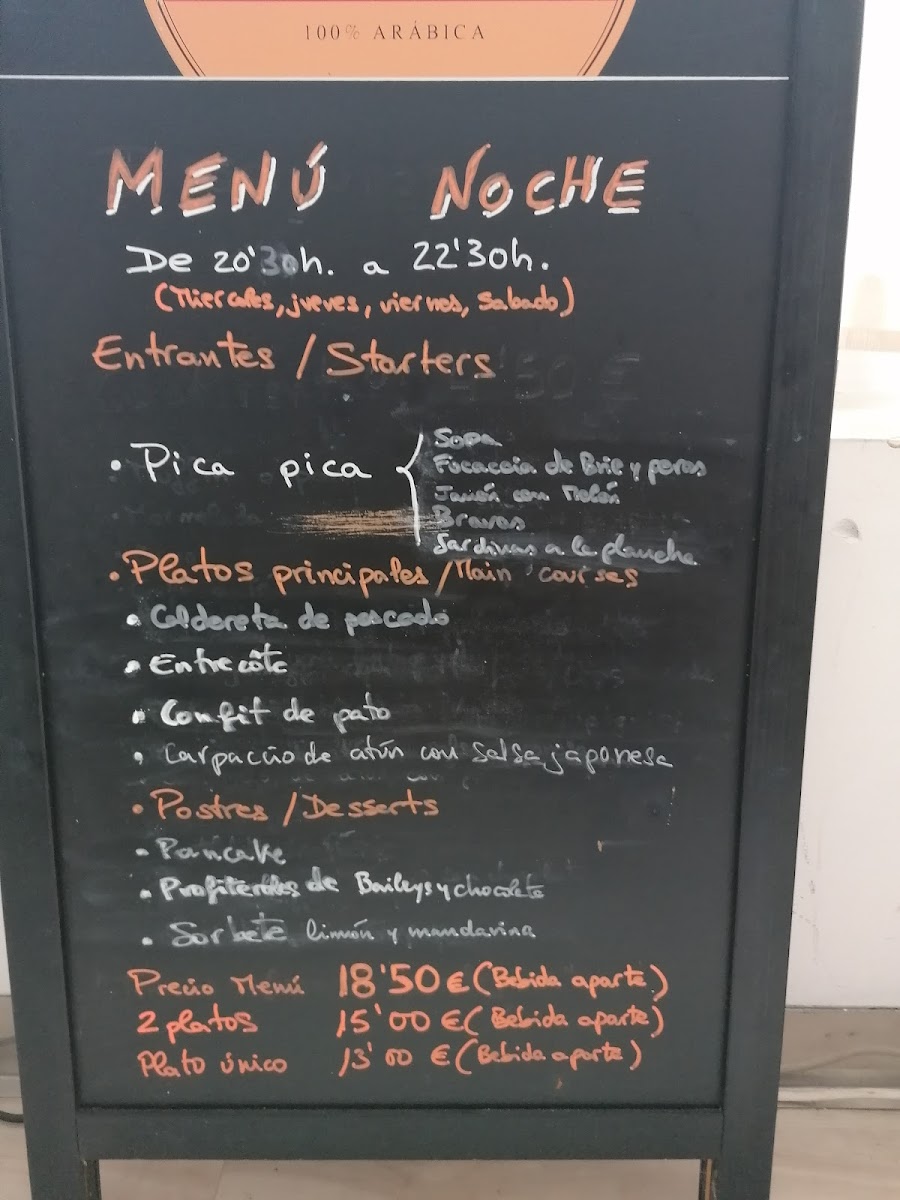 100% ARÁBICA
MENÚ NOCHE
De 20'30h. a 22'30h.
(Miercoles, jueves, viernes, Sabado)
Entrantes / Starters
• Pica pica
Sopa
Focaccia de Brie y peras
Jamón con Melón
Bravas
Sardinas a la plancha
• Platos principales / Main courses
• Caldereta de pescado
• Entrecôte
• Confit de pato
• Carpaccio de atún con salsa japonesa
• Postres / Desserts
• Pancake
• Profiteroles de Baileys y chocolate
• Sorbete limón y mandarina
Precio Menú 18'50 € (Bebida aparte)
2 platos 15'00 € (Bebida aparte)
Plato único 13'00 € (Bebida aparte)